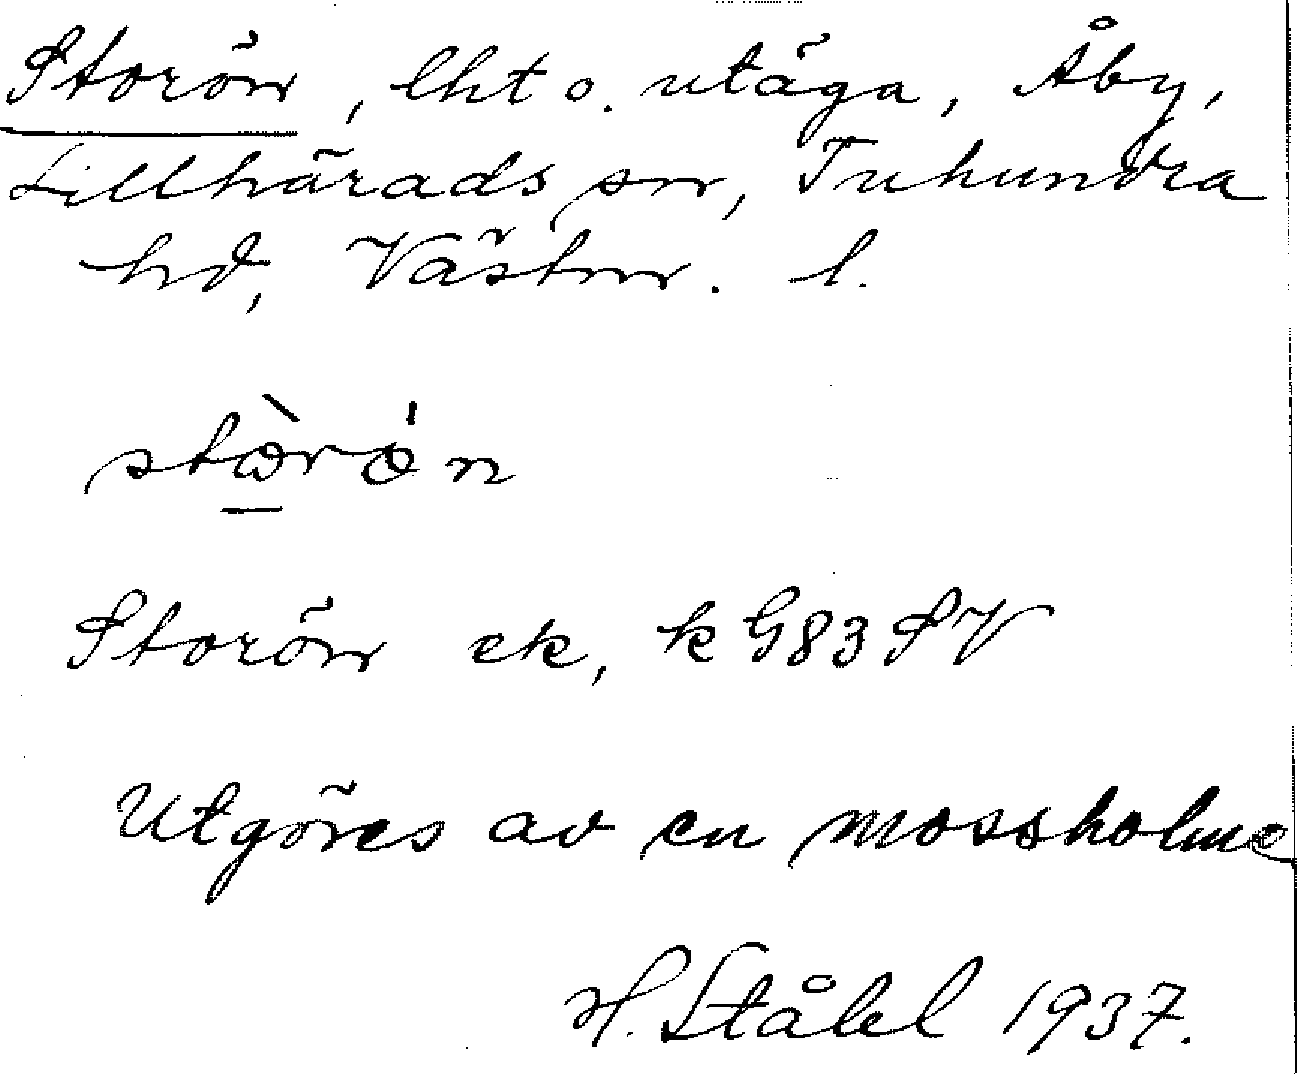 Storön, lht o. utäga, Åby,
Lillhärads sn, Tuhundra
hd, Västm. l.
stòrǿn
Storön ek, k G83 SV
Utgöres av en mossholme
H. Ståhl 1937.